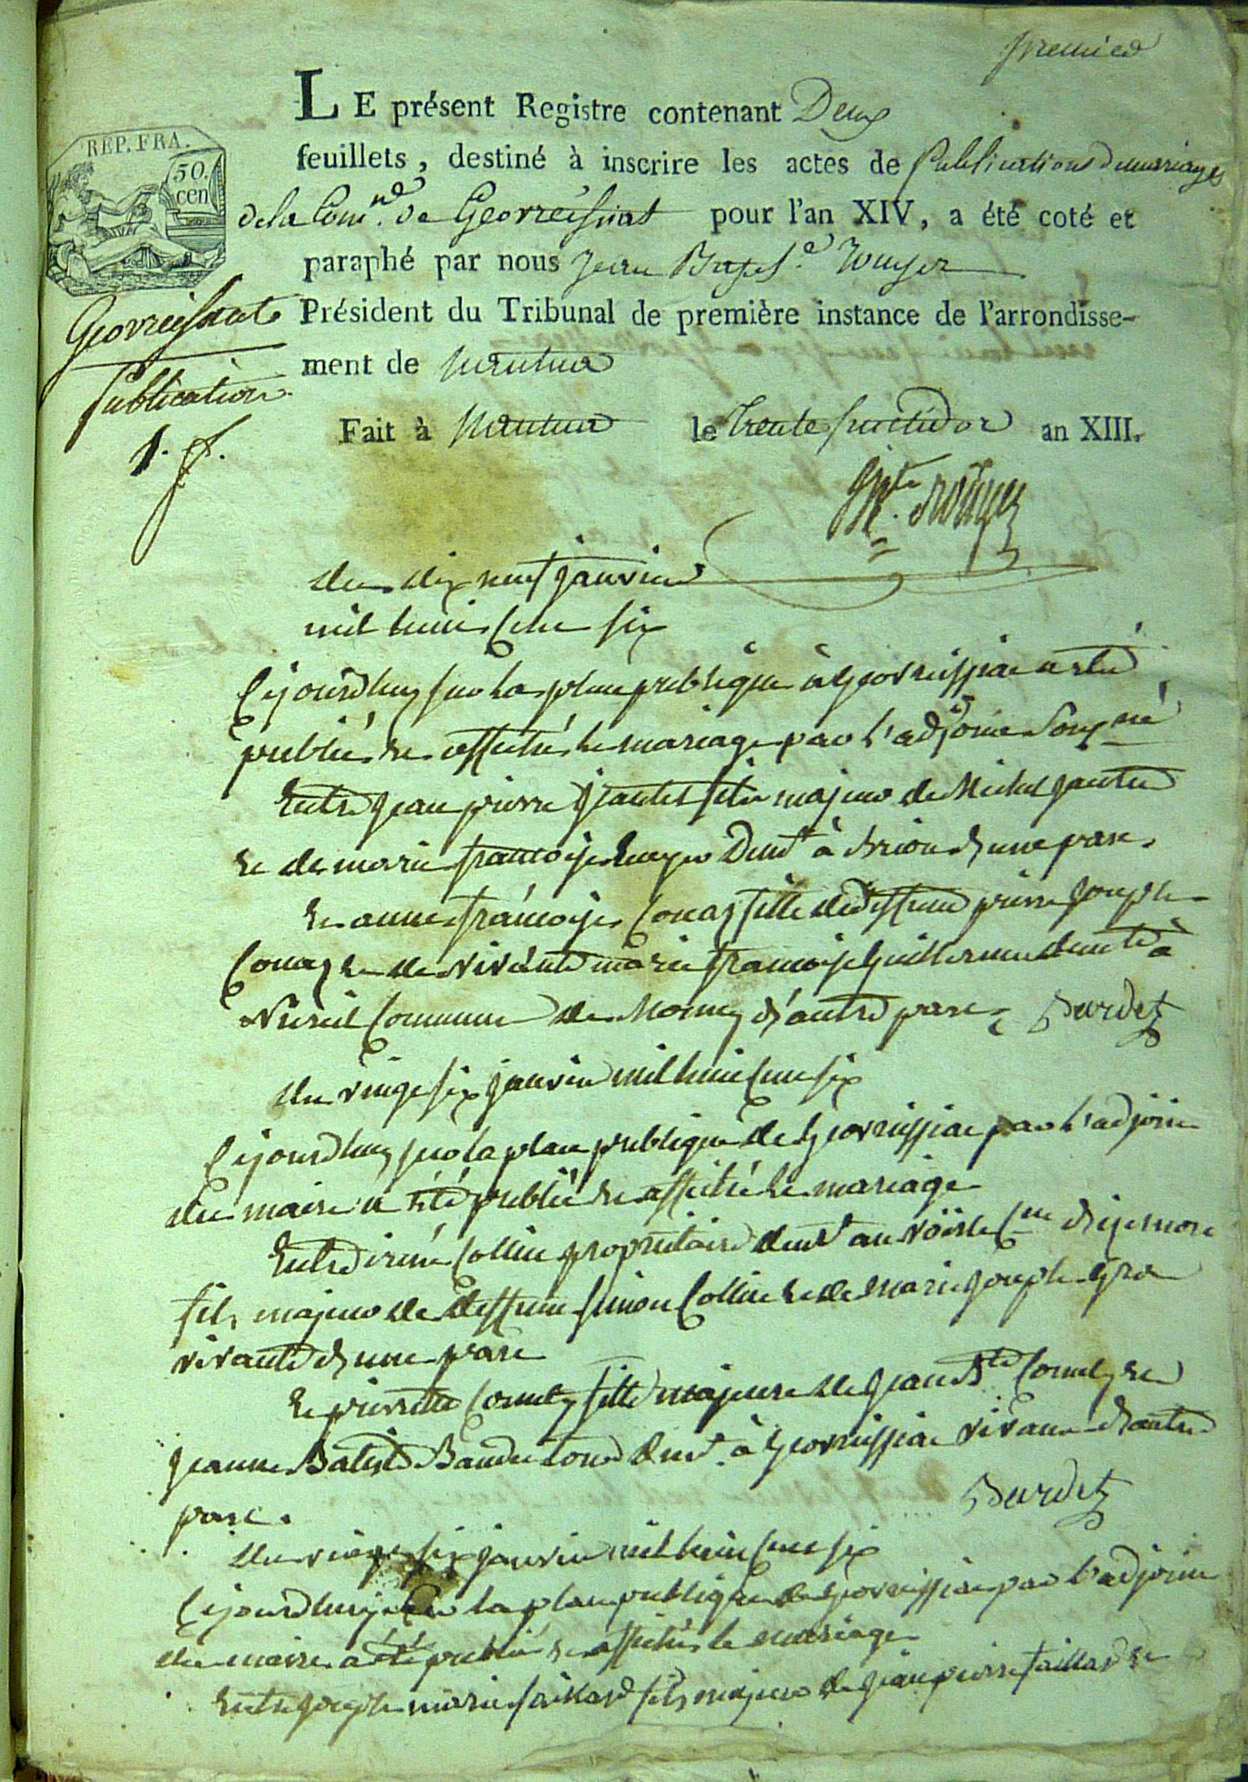 premier
LE présent Registre contenant Deux
REP. FRA.
50.
cen
feuillets, destiné à inscrire les actes de Publications de mariages
de la Com.ne de Geovreissiat pour l'an XIV, a été coté et
paraphé par nous Jean Bapt.e Rouyer
Geovreissiat
Président du Tribunal de première instance de l'arrondisse-
ment de Nantua
Publication
Fait à Nantua le trente fructidor an XIII.
1. f.
du dix neuf janvier
mil huit cent six
Cejourdhuy sur la place publique à geovreissiat a eté
publié et affiché le mariage par l'adjoint Sous.né
Entre jean pierre fils majeur de Michel
et de marie françoise Demt à brion d'une part
et anne françoise fille de deffunt pierre joseph
et de vivante marie françoise guillermet demte à
Commune de d'autre part Burdet
du vingt six janvier mil huit cent six
Cejourdhuy sur la place publique de geovreissiat par l'adjoint
du maire a été publié et affiché le mariage
Entre Collin propriétaire demt au Cne d'izernore
fils majeur de deffunt simon Collin et de marie joseph gra
vivante d'une part
et pierrette fille majeure de jean Bte et
jeanne Batiste demt à geovreissiat vivant d'autre
part. Burdet
du vingt six janvier mil huit cent six
Cejourdhuy sur la place publique de geovreissiat par l'adjoint
du maire a été publié et affiché le mariage
Entre joseph marie faillard fils majeur de jean pierre faillard et